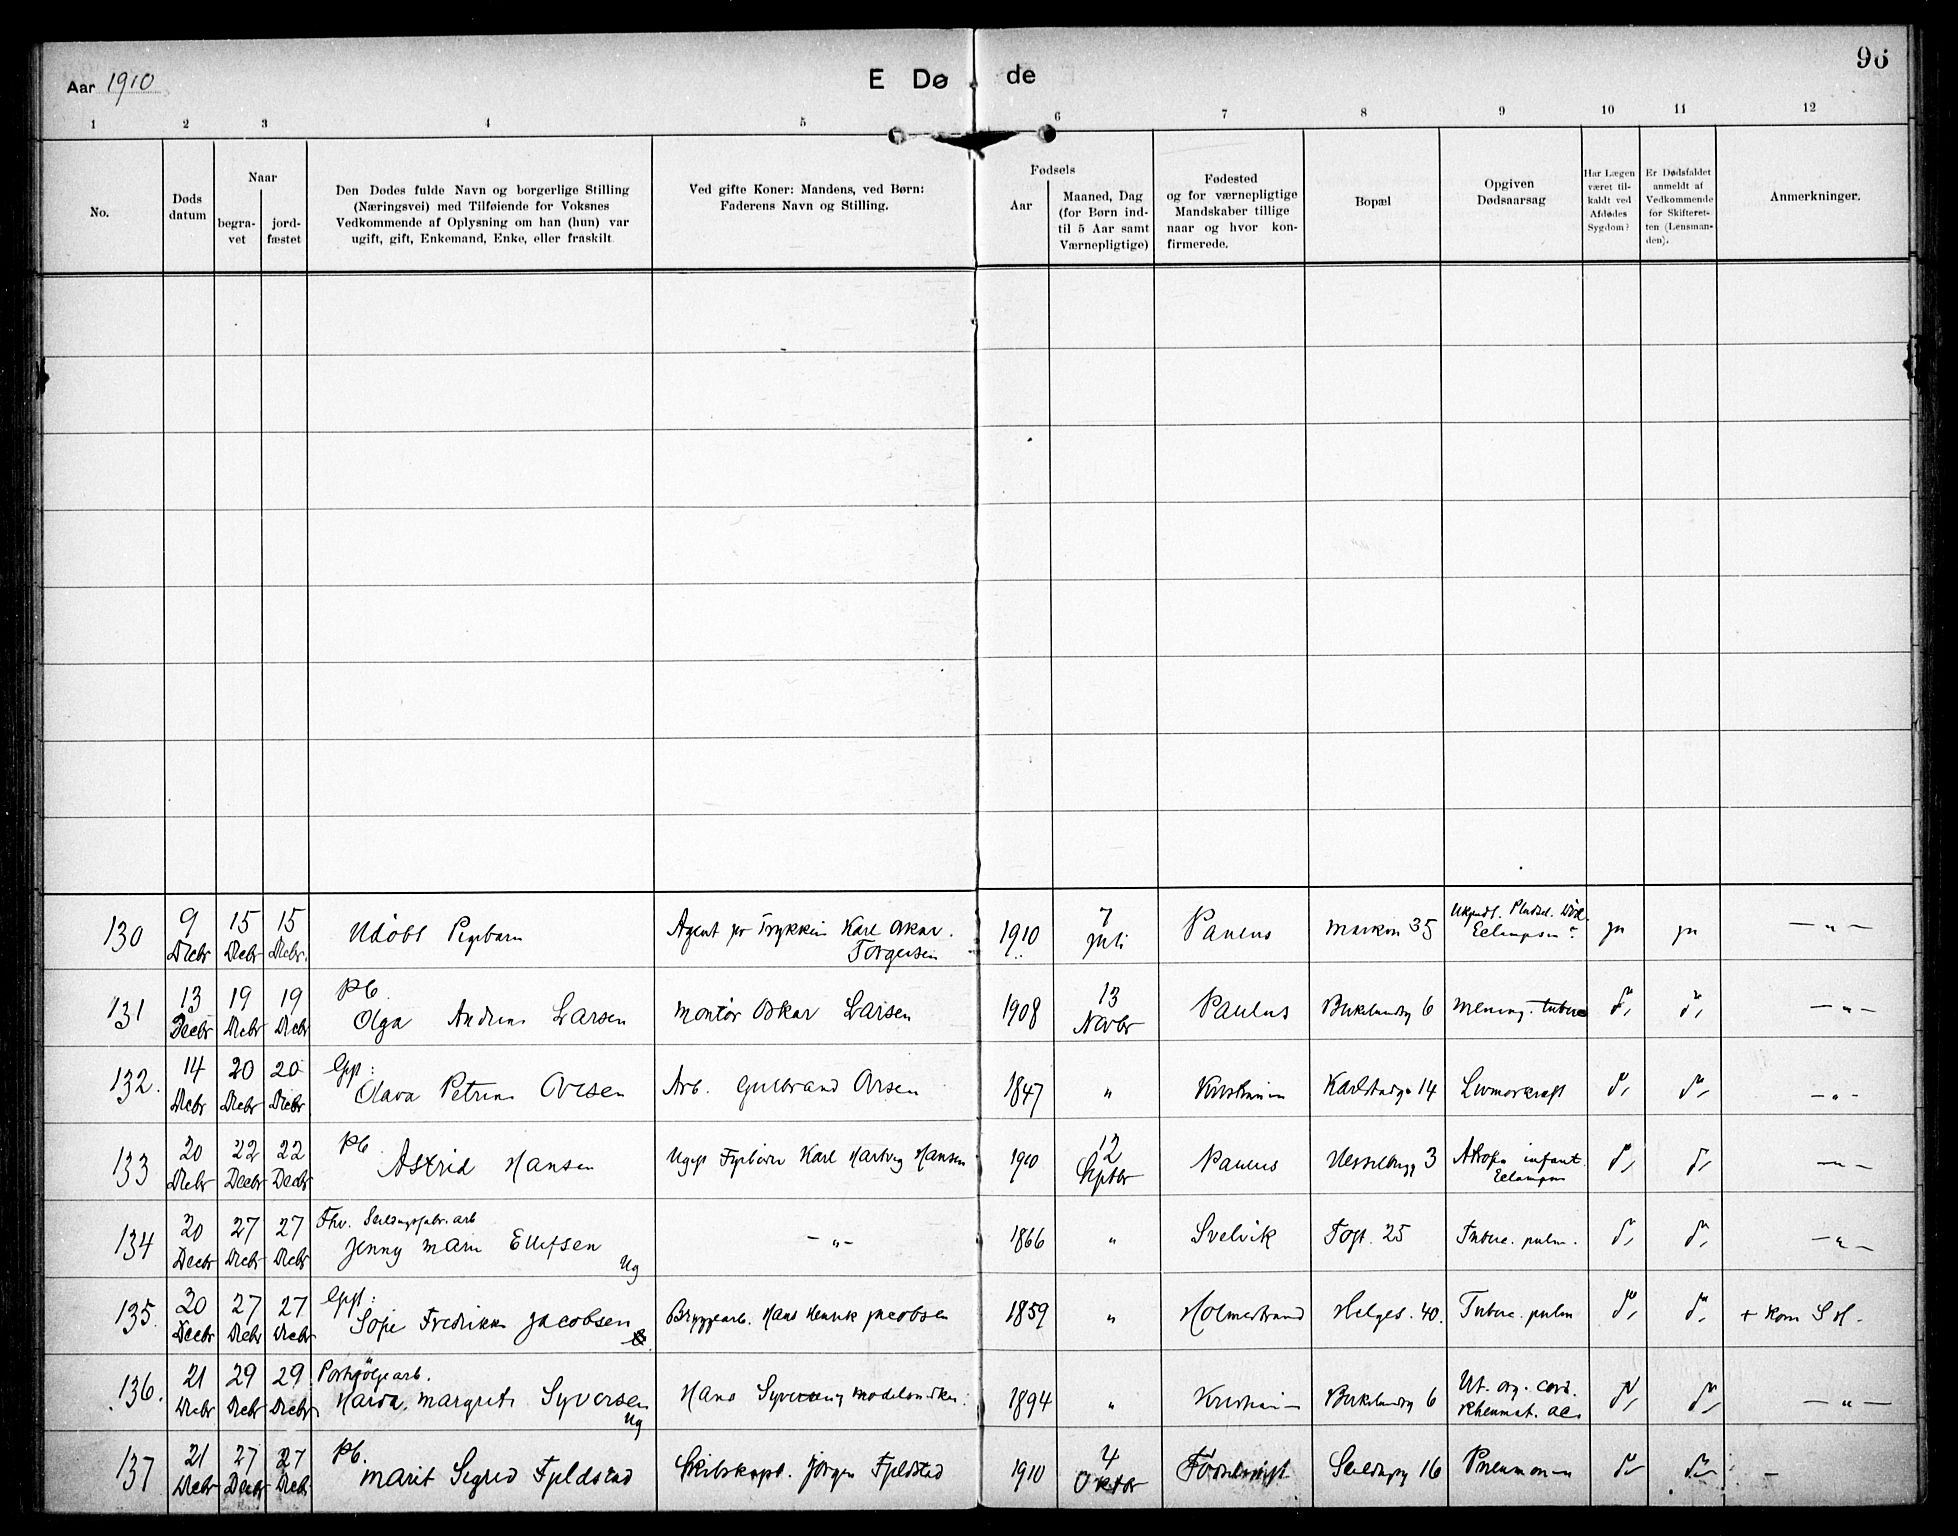 Aar 1910
E Dø de
96
1 2 3 4 5 6 7 8 9 10 11 12
No.
Døds datum
Naar
begra-vet
jord-fæstet
Den Dødes fulde Navn og borgerlige Stilling
(Næringsvei) med Tilføiende for Voksnes
Vedkommende af Oplysning om han (hun) var
ugift, gift, Enkemand, Enke, eller fraskilt
Ved gifte Koner: Mandens, ved Børn:
Faderens Navn og Stilling.
Fødsels
Aar
Maaned, Dag
(for Børn ind-
til 5 Aar samt
Værnepligtige)
Fødested
og for værnepligtige
Mandskaber tillige
naar og hvor kon-
firmerede.
Bopæl
Opgiven
Dødsaarsag
Har Lægen
været til-
kaldt ved
Afdødes
Sygdom?
Er Dødsfaldet
anmeldt af
Vedkommende
for Skifteret-
ten (Lensman-
den).
Anmerkninger.
130 9 Decbr 15 Decbr 15 Decbr. Udöbt Pigebarn Agent Karl Oskar Torgersen 1910 7 Juli Paulus Markvn 35 Eclampsia? ja ja — „ —
131 13 Decbr 19 Decbr 19 Decbr Pb. Olga Andrea Larsen Montør Oskar Larsen 1908 13 Novbr Paulus Birkelundsg 6 Mening. tuberc d, d, — „ —
132. 14 Decbr 20 Decbr 20 Decbr Gift: Olava Petrine Ovesen Arb. Gulbrand Ovesen 1847 „ Kristiania Karlstadg 14 Livmorkræft d, d, — „ —
133 20 Decbr 22 Decbr 22 Decbr Pb. Astrid Hansen Ugift Fyrbøter Karl Hartvig Hansen 1910 12 Septbr Paulus Hesselbergg 3 Atrofia infant. Eclampsia d, d, — „ —
134 20 Decbr 27 Decbr 27 Decbr Fhv. Seildugsfabr. arb Jenny Marie Ellefsen Ug — „ — 1866 „ Svelvik Fogt. 25 Tuberc. pulm. d, d, — „ —
135. 20 Decbr 27 Decbr 27 Decbr Gift: Sofie Fredrikke Jacobsen Bryggearb. Hans Henrik Jacobsen 1859 „ Holmestrand Helges. 40. Tuberc. pulm d, d, + Kom S H.
136. 21 Decbr 29 Decbr 29 Decbr Margrete Syversen Ug Hans Syversen, Modelsnedker. 1894 „ Kristiania Birkelundsg 6 Vit. org. cord. Rheumat. ac. d, d, — „ —
137 21 Decbr 27 Decbr 27 Decbr Pb. Marit Sigrid Fjeldstad Skibskapt. Jørgen Fjeldstad 1910 4 Oktbr Fødselsstift Seildugsg 16 Pneumonia do do —